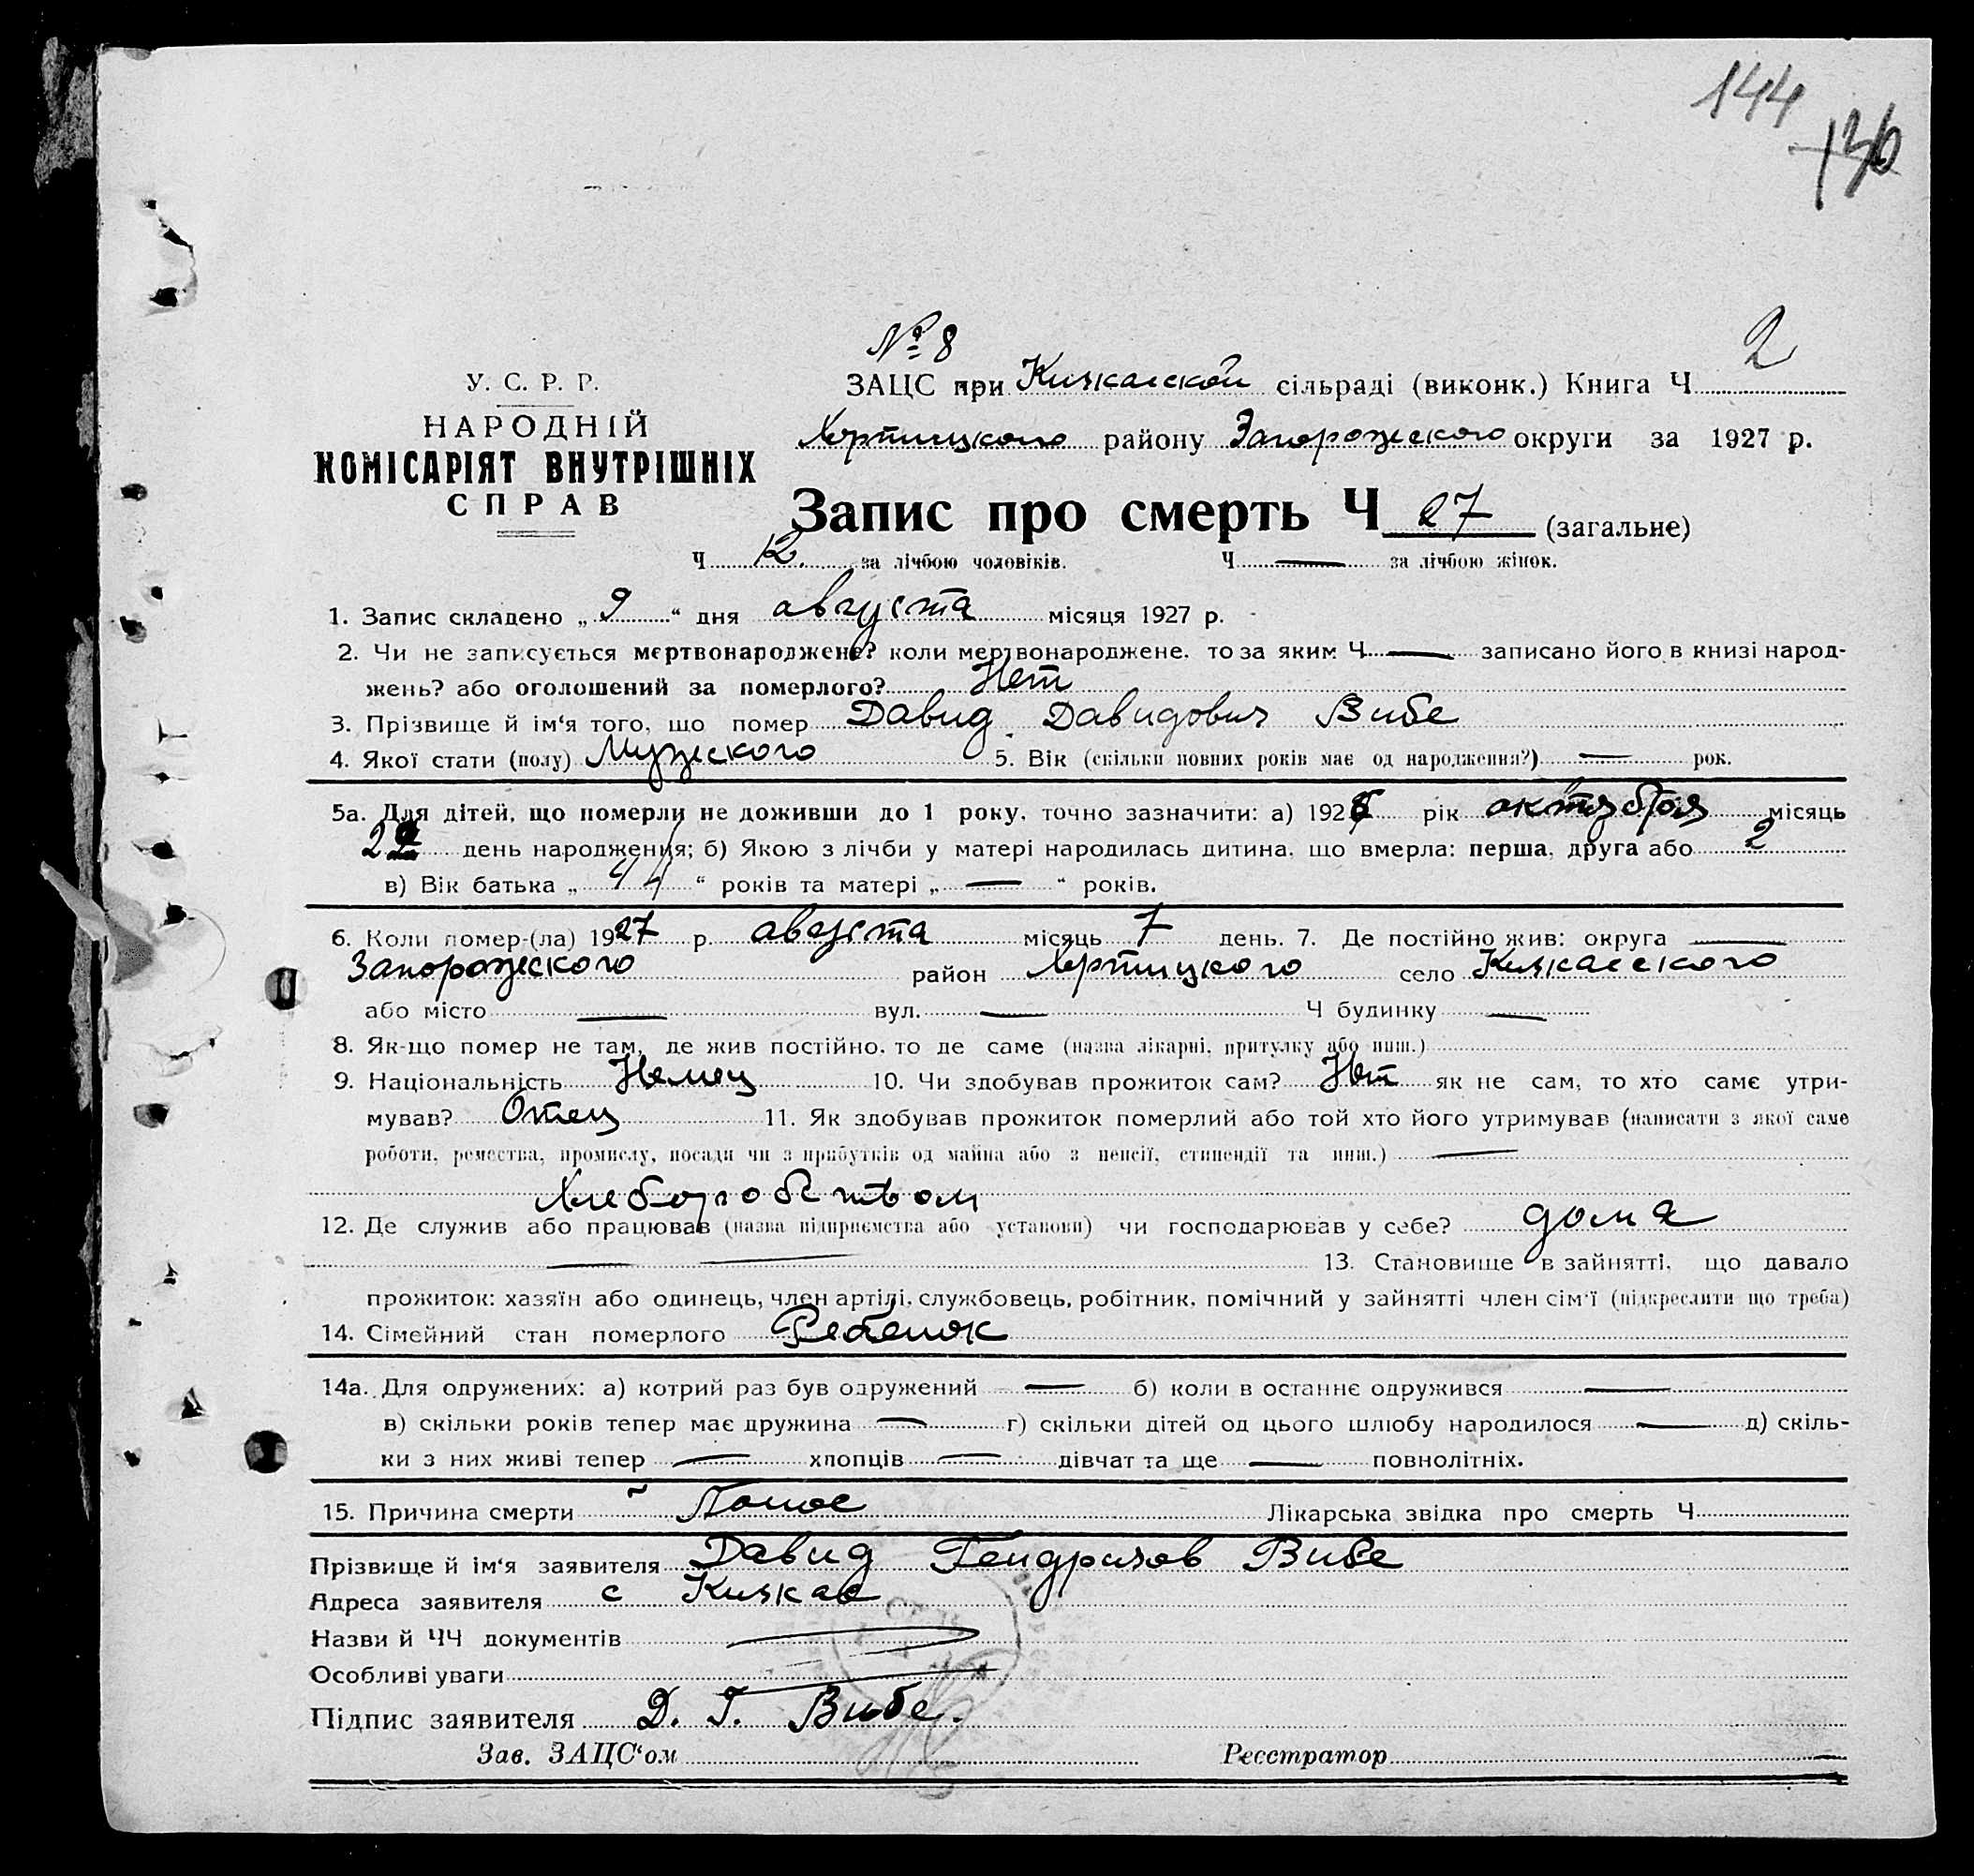 144
136
№ 8
У. С. Р. Р.
НАРОДНІЙ
КОМІСАРІЯТ ВНУТРІШНІХ
СПРАВ
ЗАЦС при Кичкасской сільраді (виконк.) Книга Ч 2
Хортицкого району Запорожского округи за 1927 р.
Запис про смерть Ч 27 (загальне)
Ч 12. за лічбою чоловіків. Ч — за лічбою жінок.
1. Запис складено „ 9 “ дня августа місяця 1927 р.
2. Чи не записується мертвонароджене? коли мертвонароджене, то за яким Ч — записано його в книзі народ-
жень? або оголошений за померлого? Нет
3. Прізвище й ім‘я того, що помер Давид Давидович Вибе
4. Якої стати (полу) Мужеского 5. Вік (скільки повних років має од народження?) — рок.
5а. Для дітей, що померли не доживши до 1 року, точно зазначити: а) 1926 рік октября місяць
22 день народження; б) Якою з лічби у матері народилась дитина, що вмерла: перша, друга або 2
в) Вік батька „ 44 “ років та матері „ — “ років.
6. Коли помер-(ла) 1927 р. августа місяць 7 день. 7. Де постійно жив: округа —
Запорожского район Хортицкого село Кичкасского
або місто — вул. — Ч будинку —
8. Як-що помер не там, де жив постійно, то де саме (назва лікарні, притулку або инш.)
9. Національність Немец 10. Чи здобував прожиток сам? Нет як не сам, то хто саме утри-
мував? Отец 11. Як здобував прожиток померлий або той хто його утримував (написати з якої саме
роботи, ремества, промислу, посади чи з прибутків од майна або з пенсії, стипендії та инш.) —
Хлеборобством
12. Де служив або працював (назва підприємства або установи) чи господарював у себе? дома
— — 13. Становище в зайнятті, що давало
прожиток: хазяїн або одинець, член артілі, службовець, робітник, помічний у зайнятті член сім‘ї (підкреслити що треба)
14. Сімейний стан померлого Ребенок
14а. Для одружених: а) котрий раз був одружений — б) коли в останнє одружився —
в) скільки років тепер має дружина — г) скільки дітей од цього шлюбу народилося — д) скіль-
ки з них живі тепер — хлопців — дівчат та ще — повнолітніх.
15. Причина смерти Понос Лікарська звідка про смерть Ч
Прізвище й ім‘я заявителя Давид Гендрихов Вибе
Адреса заявителя с Кичкас
Назви й ЧЧ документів
Особливі уваги
Підпис заявителя Д. Г. Вибе.
Зав. ЗАЦС‘ом Реєстратор